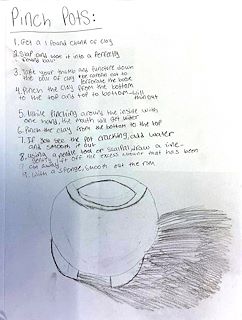 Pinch Pots:
1. Get a 1 pound chunk of clay
2. Slap and woot it into a perfectly
round ball
3. Take your thumb and puncture down
the ball of clay be careful not to
perforate the base
4. Pinch the clay from the bottom
to the top and top to bottom-will
thin out
5. While pinching around the inside with
one hand, the mouth will get wider
6. Pinch the clay from the bottom to the top
7. If you see the pot cracking, add water
and smooth it out
8. Using a needle tool or scalpel, draw a line
lift off the excess that has been
cut away
9. With a sponge, smooth out the rim